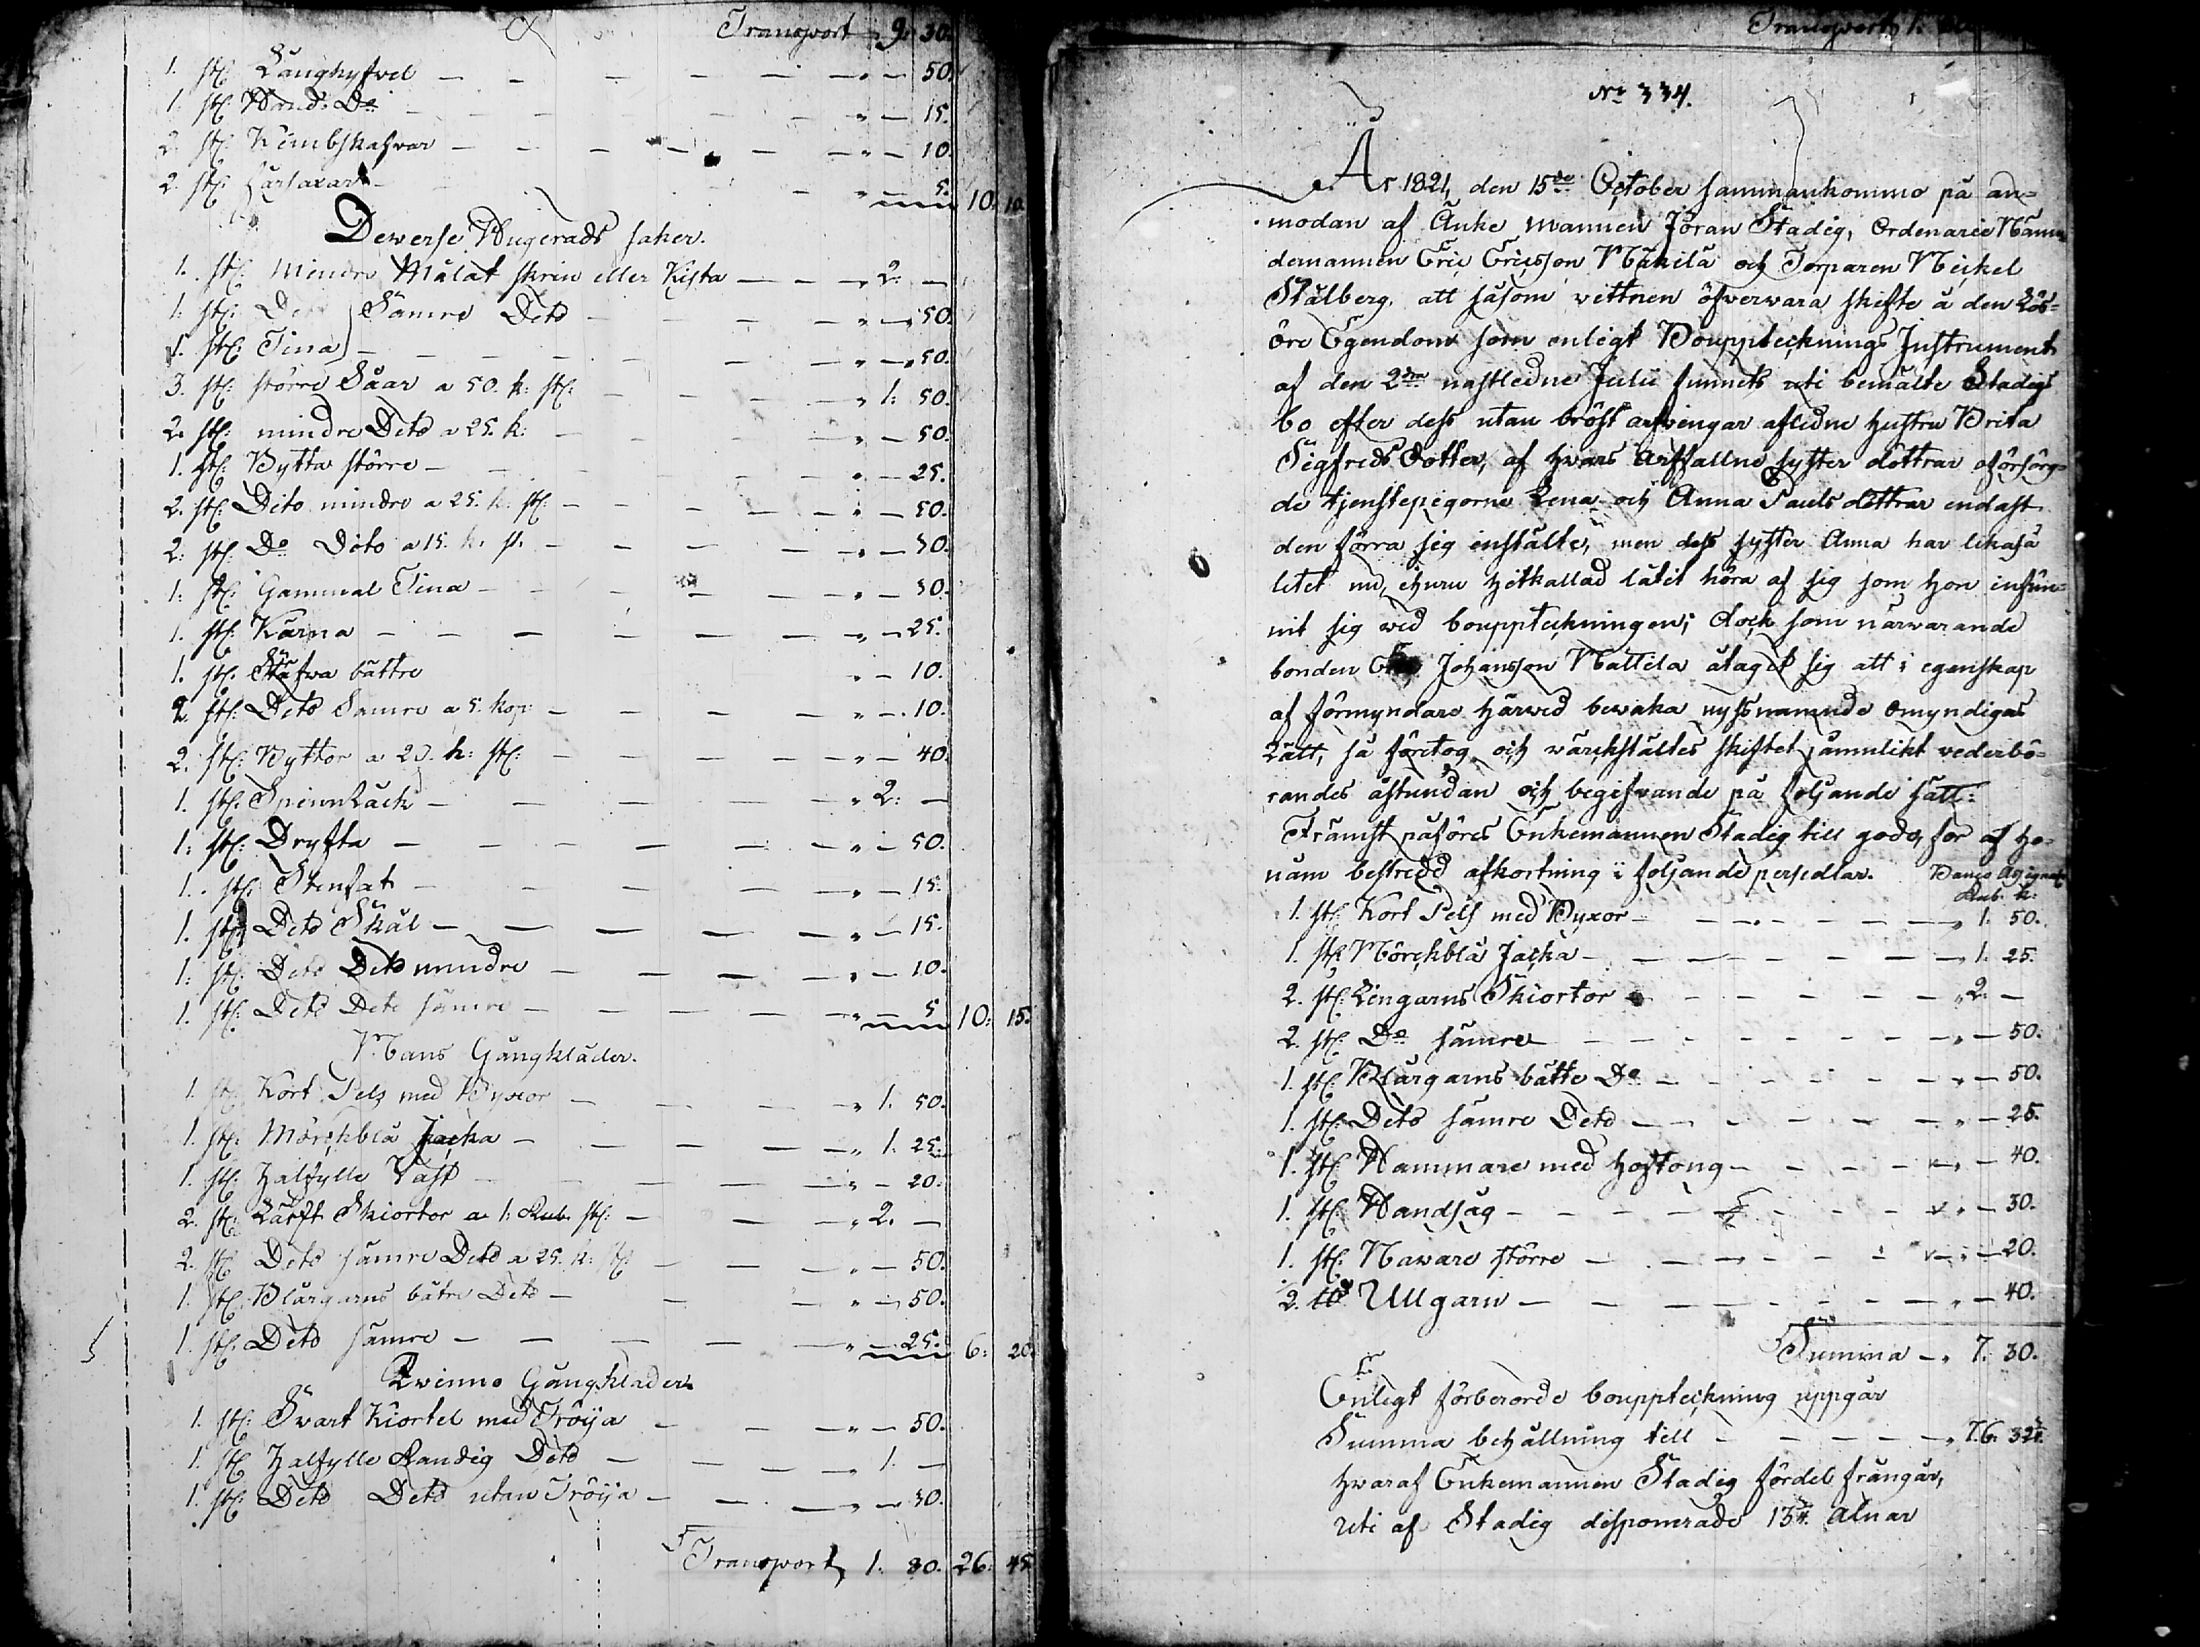 Transport 9. 30.
1. st: Långhyfvel — — 50.
1. st: Hand: Do — 15.
2. st: Kimbskafvar — 10.
2. st: — 5. 10. 10.
Dewerse Hugerads saker.
1. st: mindre Målat skrin eller Kista — 2: —
1: st: Sämre Dito — 50.
1. st: Tina — 50.
3. st: större Såar a 50. k: st: — 1: 50.
2. st: mindre Dito a 25. k: — 50.
1. st: Bytta större — 25.
2. st: Dito mindre a 25. k: st: — 50.
2: st: Do Dito a 15. k. st. — 30.
1: st: Gammal Tina — 30.
1. st: Kärna — 25.
1. st. bättre — 10.
2. st: Dito Sämre a 5. kop: — 10.
2. st: Byttor a 20. k: st: — 40.
1. st: Spinnråck — 2: —
1: st: Dryfta — 50.
1. st: Stenfat — 15.
1. st: Dito Skål — 15.
1: st: Dito Dito mindre — 10.
1. st: Dito Dito sämre — 5 10: 15.
Mans Gångkläder.
1. st: Kort Pels med Byxor — 1. 50.
1. st: Mörckblå Jacka — 1. 25.
1. st: Halfylle Väst — 20.
2. st: Lärft Skiortor a 1: Rub. st: — 2. —
2. st: Dito sämre Dito a 25. k: st: — 50.
1. st: Blårgarns bätre Dito — 50.
1. st: Dito sämre — 25. 6: 20.
Qvinno Gångkläder.
1. st: Svart Kiortel med Tröija — 50.
1. st: Halfylle Randig Dito — 1. —
1. st: Dito Dito utan Tröija — 30.
Transport 1. 80. 26: 45.
Transport 1.
No 334.
År 1821, den 15de October sammankommo på an=
modan af Änke mannen Jöran Stadig, Ordenarie Nämn=
demannen Eric Ericsson Mäkilä och Torparen Mickel
Stålberg, att såsom vittnen öfvervara skifte å den Lös=
öre Egendom som enligt Boupptecknings Instrument
af den 2dra nästledne Julii funnits uti bemälte Stadigs
bo efter dess utan bröst arfvingar aflidne hustru Brita
Sigfreds Dotter, af hvars arffallne syster döttrar oförsörg=
de tjenstepigorna Lena och Anna Pauls döttrar endast
den förra sig instälte, men dess syster Anna har likaså
litet nu, ehuru hitkallad låtit höra af sig som hon infun=
nit sig wid bouppteckningen; dock som närvarande
bonden Johansson Mattila åtagit sig att i egenskap
af förmyndare härwid bewaka nyssnämnde omyndigas
Rätt, så företog och wärckstältes skiftet jämnlikt vederbö=
randes åstundan och begifvande på följande sätt:
Främst påföres Enkemannen Stadig till godo, för af ho=
nom bestredd afkortning i följande persedlar. Banco Assignat
Rub. k.
1. st: Kort Pels med Byxor — 1. 50.
1. st: Mörckblå Jacka — 1. 25.
2. st: Lingarns Skiortor — 2. —
2. st: Do sämre — 50.
1. st: Blårgarns bätte Do — 50.
1. st: Dito sämre Dito — 25.
1. st: Hammare med hoftong — 40.
1. st: Handsåg — 30.
1. st: Naware större — 20.
2. ℔ Ullgarn — 40.
Summa — 7. 30.
Enligt förberörde bouppteckning uppgår
Summa behållning till — 76. 32
hvaraf Enkemannen Stadig fördel frångår,
uti af Stadig disponerade 13 alnar